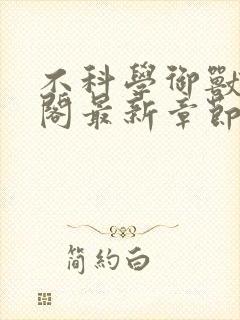 不科學御獸
閣最新章節
簡約白